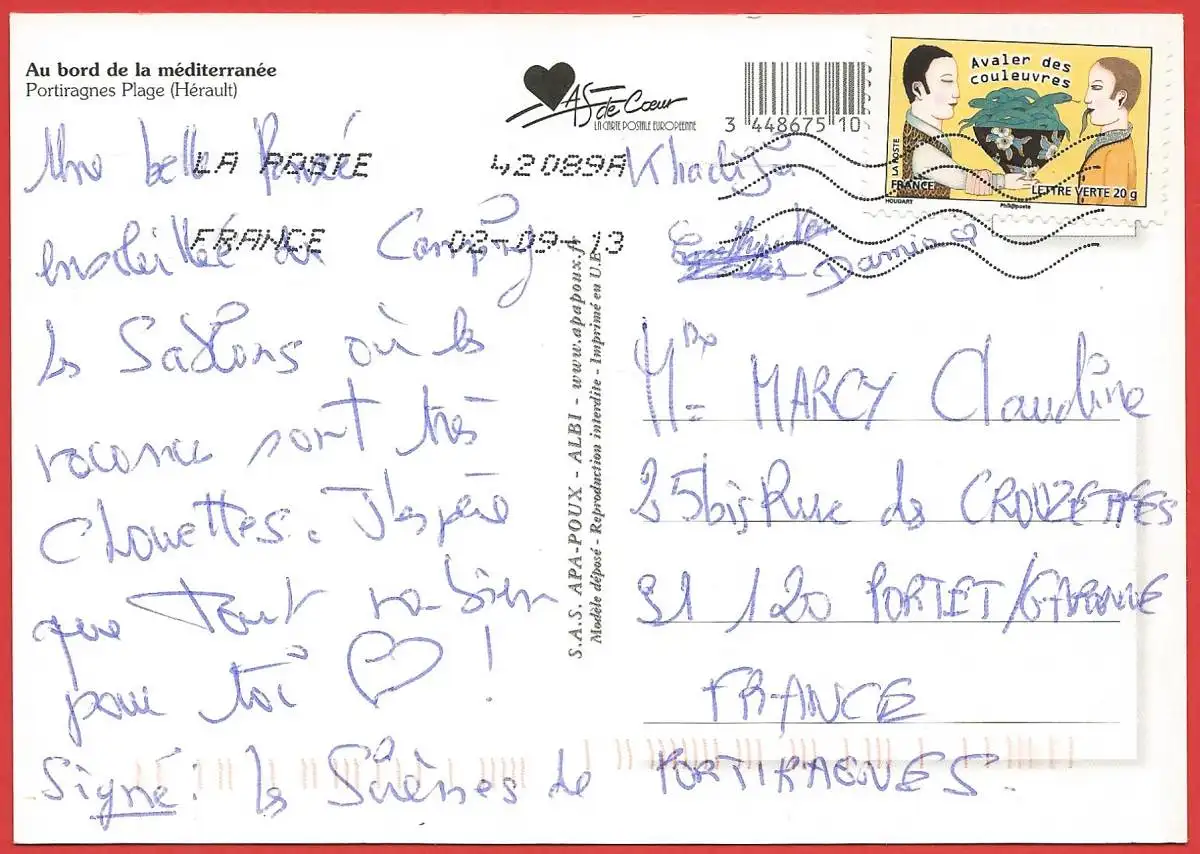 Au bord de la méditerranée
Portiragnes Plage (Hérault)
AS de Cœur
LA CARTE POSTALE EUROPÉENNE
3 448675 10
Avaler des
couleuvres
LA POSTE
FRANCE
LETTRE VERTE 20 g
HOUDART
Phil@poste
LA POSTE
42089A
FRANCE
02-09-13
Une belle Pensée
ensoleillée du Camping
les Sablons où les
vacances sont très
Chouettes. J'espère
que Tout va bien
pour toi !
Signé : les Sirènes de PORTIRAGNES.
S.A.S. APA-POUX - ALBI - www.apapoux.fr
Modèle déposé - Reproduction interdite - Imprimé en U.E.
Khadija
Damia
Mme MARCY Claudine
25bis Rue des CROUZETTES
31 120 PORTET/GARONNE
FRANCE